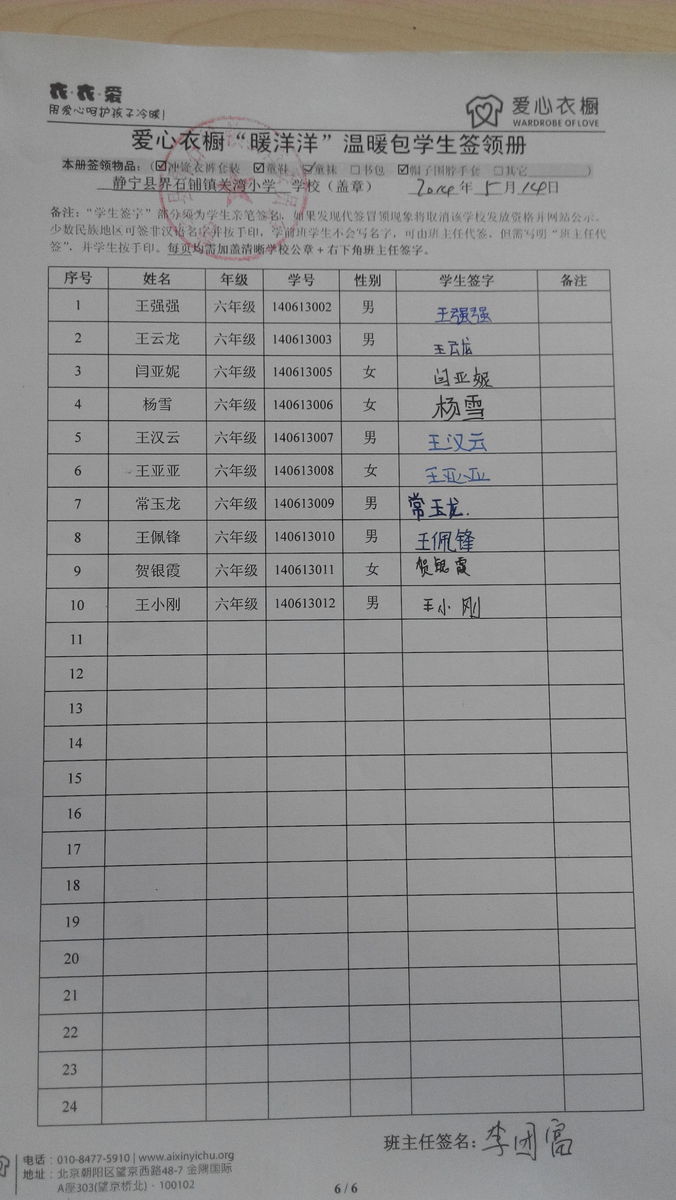 衣·衣·爱
用爱心呵护孩子冷暖!
爱心衣橱
WARDROBE OF LOVE
爱心衣橱“暖洋洋”温暖包学生签领册
本册签领物品:(☑冲锋衣裤套装 ☑童鞋 ☑童袜 □书包 ☑帽子围脖手套 □其它 )
静宁县界石铺镇关湾小学 学校(盖章) 2014年5月14日
备注:“学生签字”部分须为学生亲笔签名,如果发现代签冒领现象将取消该学校发放资格并网站公示。
少数民族地区可签非汉语名字并按手印,学前班学生不会写名字,可由班主任代签,但需写明“班主任代
签”,并学生按手印。每页均需加盖清晰学校公章+右下角班主任签字。
序号 姓名 年级 学号 性别 学生签字 备注
1 王强强 六年级 140613002 男 王强强
2 王云龙 六年级 140613003 男 王云龙
3 闫亚妮 六年级 140613005 女 闫亚妮
4 杨雪 六年级 140613006 女 杨雪
5 王汉云 六年级 140613007 男 王汉云
6 王亚亚 六年级 140613008 女 王亚亚
7 常玉龙 六年级 140613009 男 常玉龙.
8 王佩锋 六年级 140613010 男 王佩锋
9 贺银霞 六年级 140613011 女 贺银霞
10 王小刚 六年级 140613012 男 王小刚
11
12
13
14
15
16
17
18
19
20
21
22
23
24
班主任签名:李团富
电话:010-8477-5910 | www.aixinyichu.org
地址:北京朝阳区望京西路48-7 金隅国际
A座303(望京桥北) · 100102
6 / 6